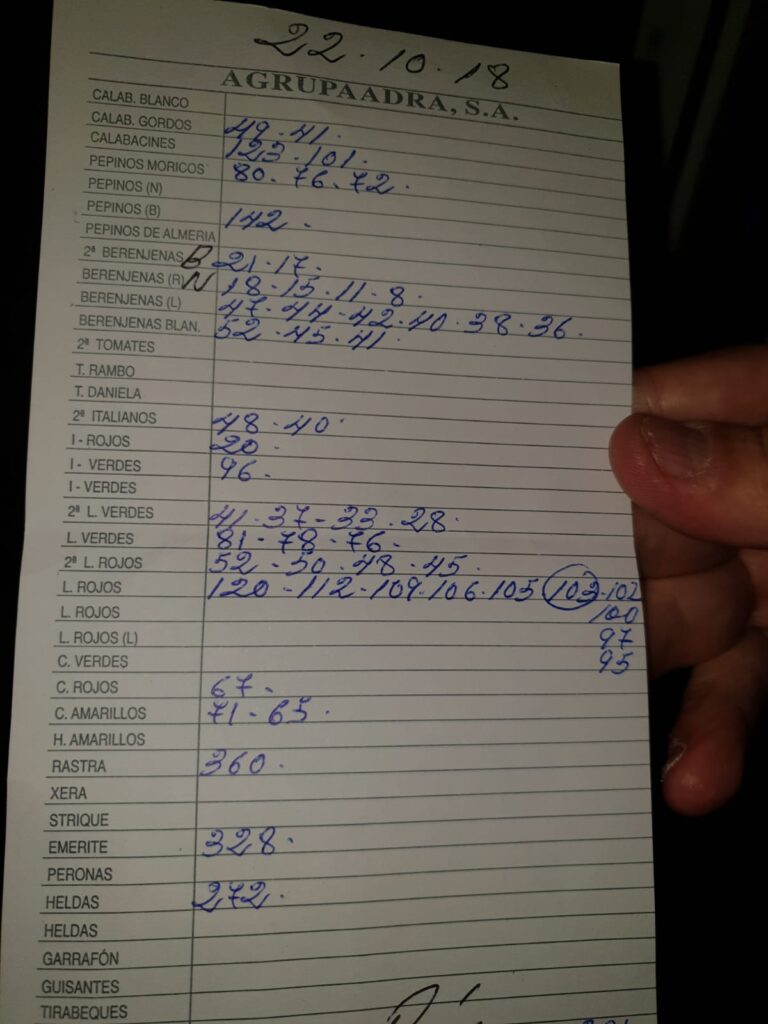 22·10·18
AGRUPAADRA, S.A.
CALAB. BLANCO
CALAB. GORDOS 49·41·
CALABACINES 123·101·
PEPINOS MORICOS 80·76·72·
PEPINOS (N)
PEPINOS (B) 142·
PEPINOS DE ALMERIA
2ª BERENJENAS B 21·17·
BERENJENAS (R) N 18·15·11·8·
BERENJENAS (L) 47·44·42·40·38·36·
BERENJENAS BLAN. 52·45·41·
2ª TOMATES
T. RAMBO
T. DANIELA
2ª ITALIANOS 48·40·
I - ROJOS 20·
I - VERDES 96·
I - VERDES
2ª L. VERDES 41·37-33·28·
L. VERDES 81-78-76-
2ª L. ROJOS 52-50·48·45·
L. ROJOS 120-112-109·106·105 103·102
L. ROJOS 100
L. ROJOS (L) 97
C. VERDES 95
C. ROJOS 67-
C. AMARILLOS 71-65·
H. AMARILLOS
RASTRA 360·
XERA
STRIQUE
EMERITE 328·
PERONAS
HELDAS 272·
HELDAS
GARRAFÓN
GUISANTES
TIRABEQUES